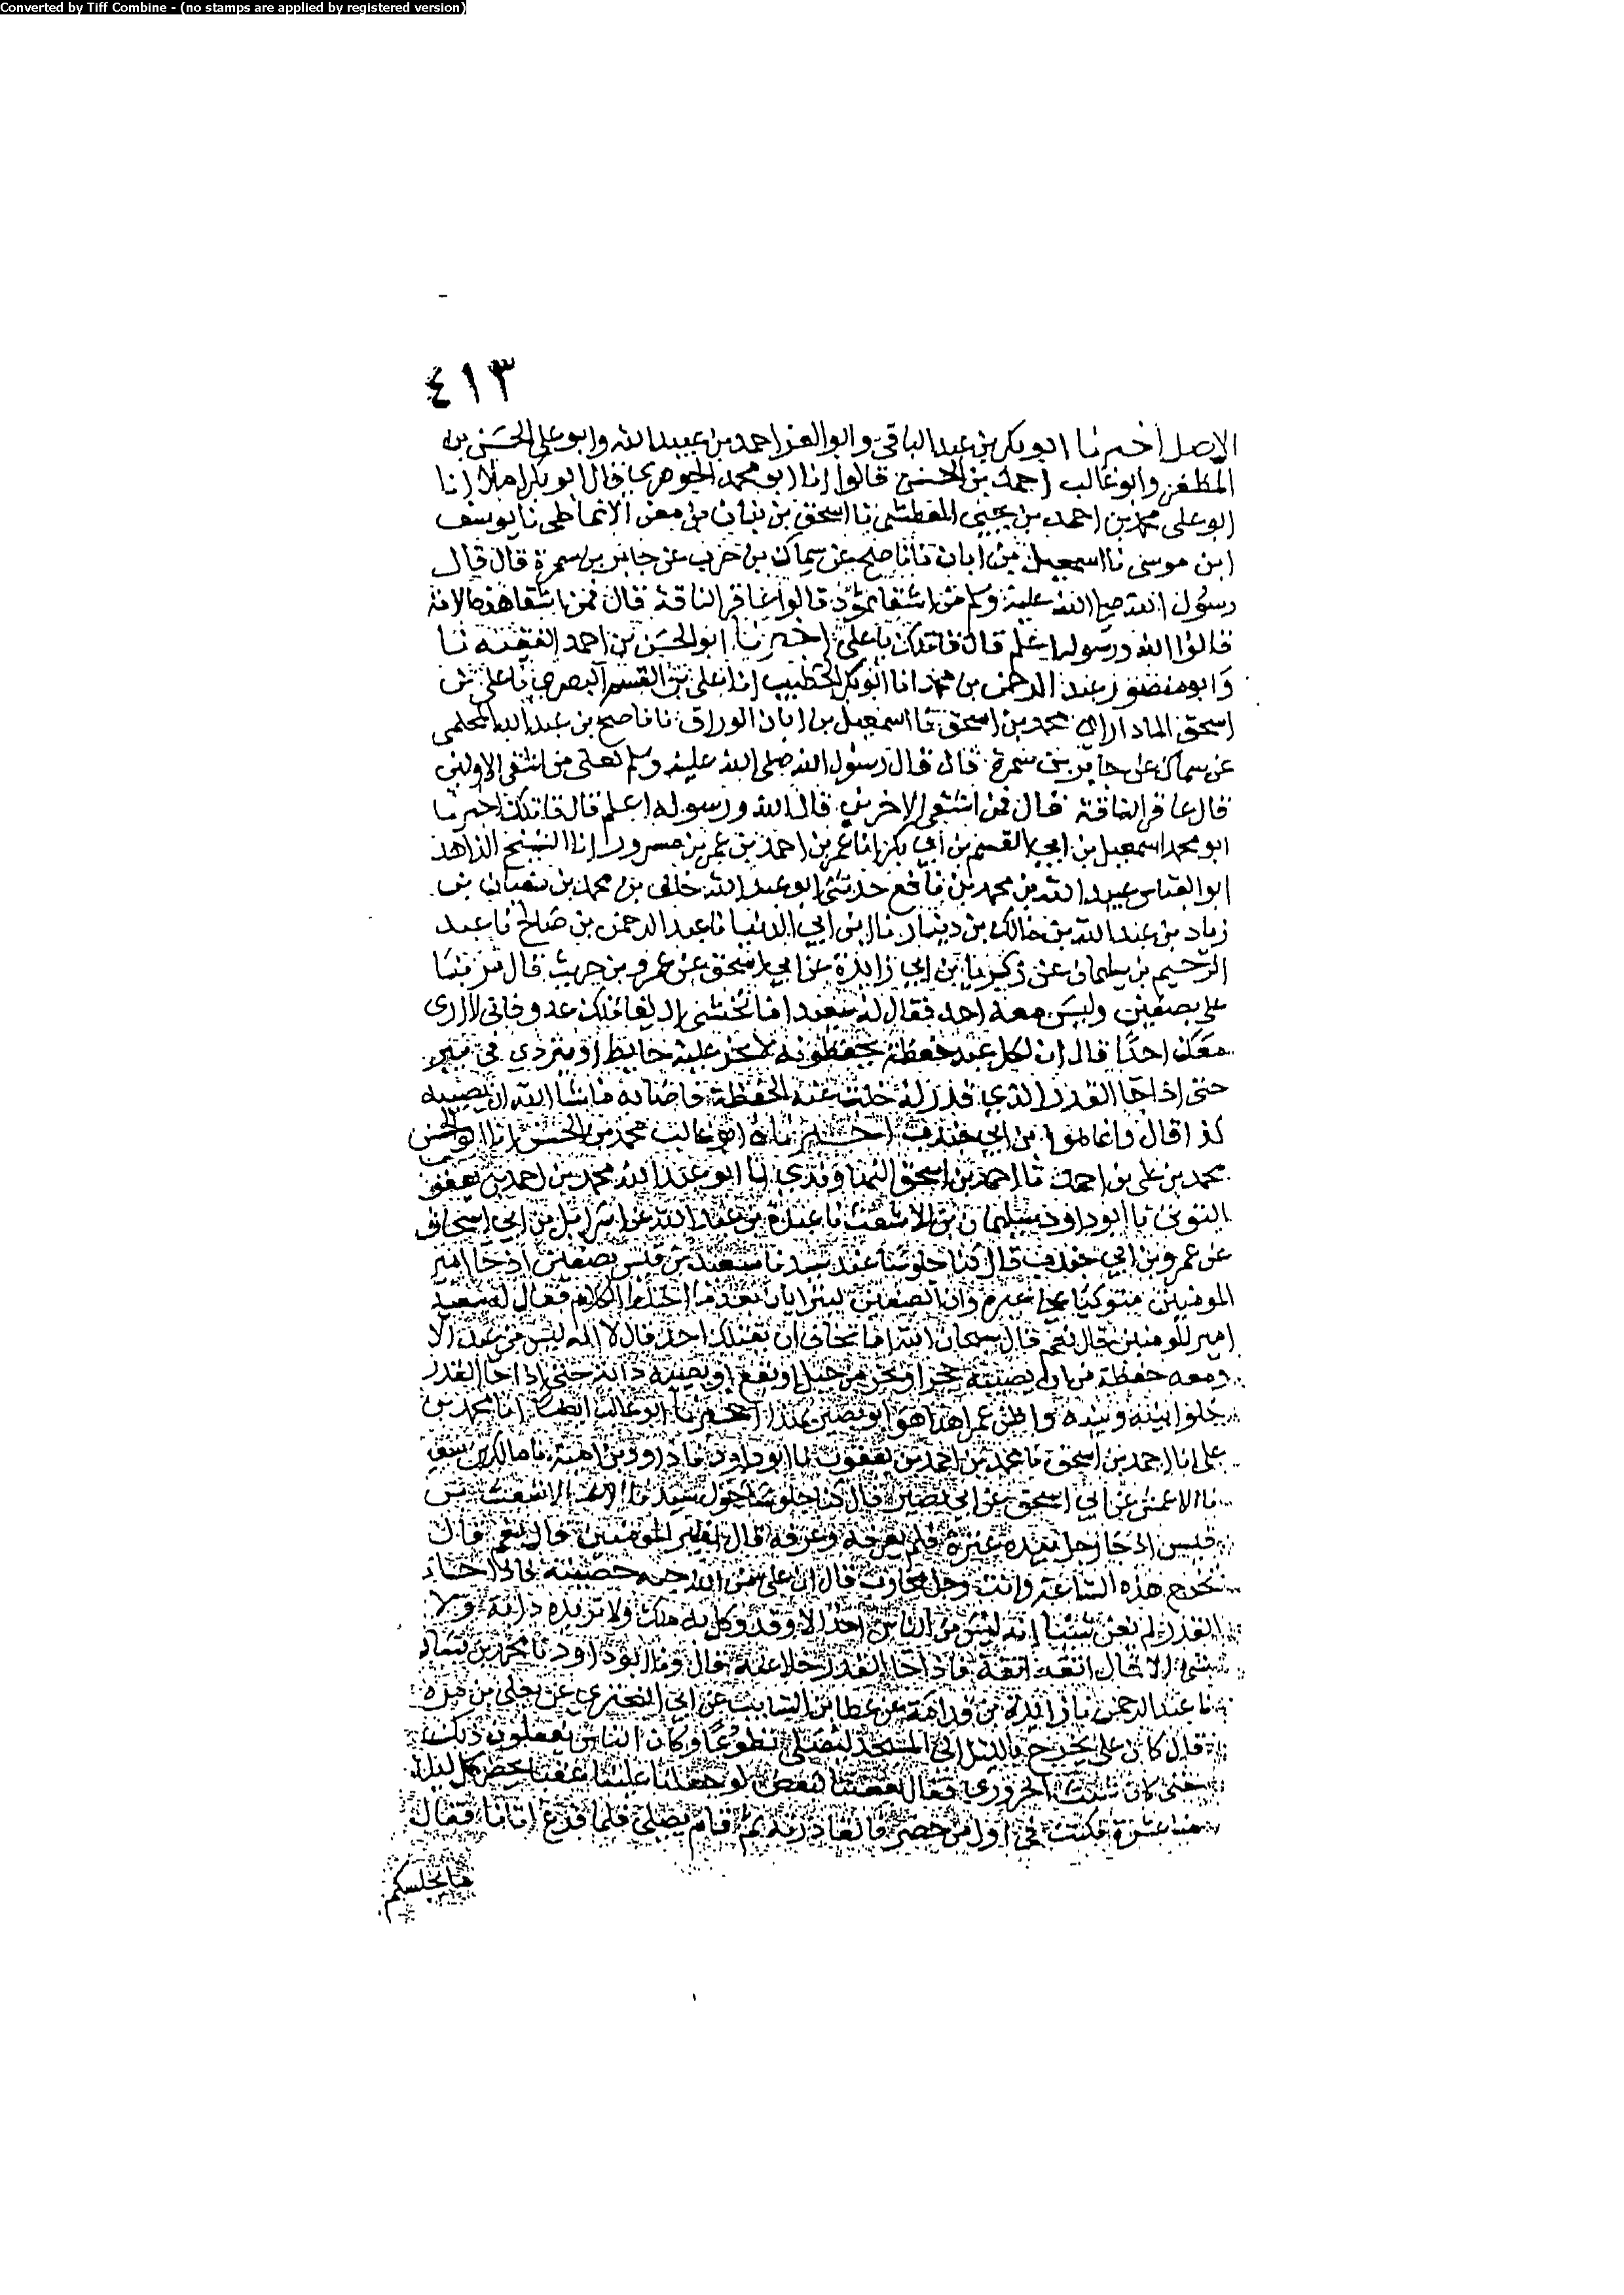 Converted by Tiff Combine - (no stamps are applied by registered version)
٤١٣
الاصل اخبرنا ابو بكر بن عبد الباقي وابو العز احمد بن عبيد الله وابو علي الحسن بن
المظفر وابو غالب احمد بن الحسن قالوا انا ابو محمد الجوهري قال ابو بكر املا انا
ابو علي محمد بن احمد بن يحيى العطشي نا اسحق بن بنان بن معن الانماطي نا يوسف
ابن موسى نا اسمعيل بن ابان نا ناصح عن سماك بن حرب عن جابر بن سمرة قال قال
رسول الله صلى الله عليه وسلم من اشقا ثمود قالوا عاقر الناقة قال فمن اشقا هذه الامة
قالوا الله ورسوله اعلم قال قاتلك يا علي اخبرنا ابو الحسن بن احمد الفقيه نا
وابو منصور عبد الرحمن بن محمد انا ابو بكر الخطيب انا علي بن القسم البصري نا علي بن
اسحق المادراي محمد بن اسحق نا اسمعيل بن ابان الوراق نا ناصح بن عبد الله المحلمي
عن سماك عن جابر بن سمرة قال قال رسول الله صلى الله عليه وسلم لعلي من اشقى الاولين
قال عاقر الناقة قال فمن اشقى الاخرين قال الله ورسوله اعلم قال قاتلك اخبرنا
ابو محمد اسمعيل بن ابي القسم بن ابي بكر انا عمر بن احمد بن عمر بن مسرور انا الشيخ الزاهد
ابو العباس عبيد الله بن محمد بن نافع حدثني ابو عبد الله خالي بن محمد بن شعبان بن
زياد بن عبد الله بن خالد بن دينار نا ابن ابي الدنيا نا عبد الرحمن بن صالح نا عبد
الرحيم بن سليمان عن زكريا بن ابي زايدة عن ابي اسحق عن عمرو بن حريث قال
علي بصفين وليس معه احد فقال له سعيد اما تخشى ان يغتالك عدو فاني لا ارى
معك احدا قال ان لكل عبد حفظة يحفظونه لا يخر عليه حايط او يتردى في بير
حتى اذا جا القدر الذي قدر له خلت عنه الحفظة فاصابه ما شا الله ان يصيبه
كذا قال وانما هو ابن ابي جندب اخبرناه ابو غالب محمد بن الحسن انا ابو الحسن
محمد بن علي بن احمد نا احمد بن اسحق النهاوندي نا ابو عبد الله محمد بن احمد بن يعقوب
المتوثي نا ابو داود سليمان بن الاشعث نا عبدة بن عبد الله عن اسرايل بن ابي اسحاق
عن عمرو بن ابي جندب قال كنا جلوسا عند سيدنا سعيد بن قيس بصفين اذ جا امير
المومنين متوكيا على عنزه وان الصفين ليترايان بعدما اختلط الظلام فقال له سعيد
امير المومنين قال نعم قال سبحان الله اما تخاف ان يقتلك احد قال لا انه ليس من عبد الا
ومعه حفظة من ان يصيبه حجر او يخر من جبل او يقع او يصيبه دابة حتى اذا جا القدر
خلوا بينه وبينه واظن عمرا هذا هو ابو بصير اخبرنا ابو غالب ايضا انا محمد بن
علي انا احمد بن اسحق نا محمد بن احمد بن يعقوب نا ابو داود نا داود بن امية نا مالك بن سعير
نا الاعمش عن ابي اسحق عن ابي بصير قال كنا جلوسا حول سيدنا الاشعث بن
قيس اذ جا رجل بيده عنزة فلم يعرفه وعرفه قال امير المومنين قال نعم قال
تخرج هذه الساعة وانت رجل محارب قال ان علي من الله جنة حصينة فاذا جاء
القدر لم يغن شيئا انه ليس من الناس احد الا وقد وكل به ملك ولا تريده دابة ولا
شي الا قال اتقه اتقه فاذا جا القدر خلا عنه قال وقال ابو داود نا محمد بن بشار
نا عبد الرحمن نا زايدة بن قدامة عن عطا بن السايب عن ابي البختري عن يعلى بن مرة
قال كان علي يخرج بالليل الى المسجد ليصلي تطوعا وكان الناس يفعلون ذلك
حتى كان شبث الحروري فقال بعضنا لبعض لو جعلنا علينا عقبا يحضر كل ليلة
منا عشرة فكنت في اول من حضر فالقا درته ثم قام يصلي فلما فرغ اتانا فقال
ما يجلسكم